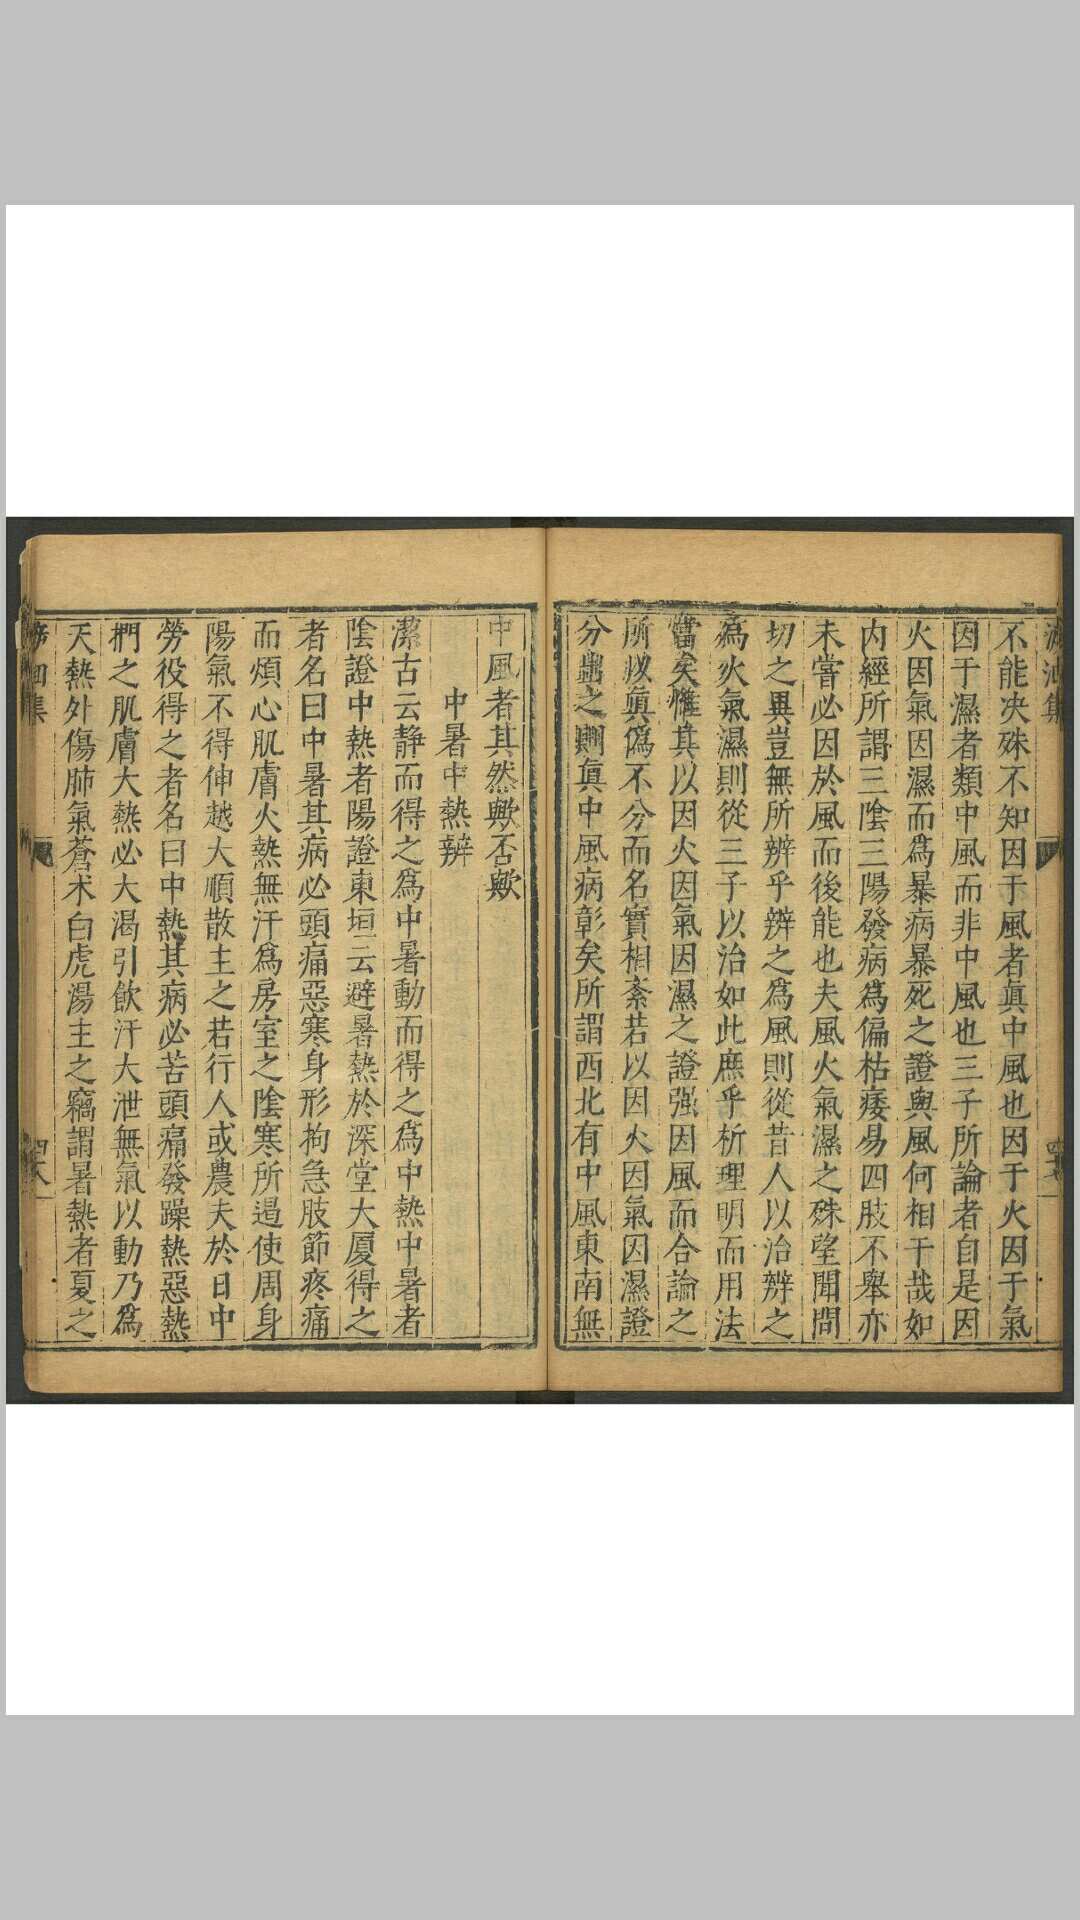 泝洄集
四十七
不能决殊不知因于風者真中風也因于火因于氣
因于濕者類中風而非中風也三子所論者自是因
火因氣因濕而爲暴病暴死之證與風何相干哉如
内經所謂三陰三陽發病爲偏枯痿易四肢不舉亦
未嘗必因於風而後能也夫風火氣濕之殊望聞問
切之異豈無所辨乎辨之爲風則從昔人以治辨之
爲火氣濕則從三子以治如此庶乎析理明而用法
當矣惟其以因火因氣因濕之證强因風而合論之
所以眞僞不分而名實相紊若以因火因氣因濕證
分出之則眞中風病彰矣所謂西北有中風東南無
中風者其然歟否歟
中暑中熱辨
潔古云静而得之爲中暑動而得之爲中熱中暑者
陰證中熱者陽證東垣云避暑熱於深堂大厦得之
者名曰中暑其病必頭痛惡寒身形拘急肢節疼痛
而煩心肌膚火熱無汗爲房室之陰寒所遏使周身
陽氣不得伸越大順散主之若行人或農夫於日中
勞役得之者名曰中熱其病必苦頭痛發躁熱惡熱
捫之肌膚大熱必大渴引飲汗大泄無氣以動乃爲
天熱外傷肺氣蒼术白虎湯主之竊謂暑熱者夏之
泝洄集
四十八